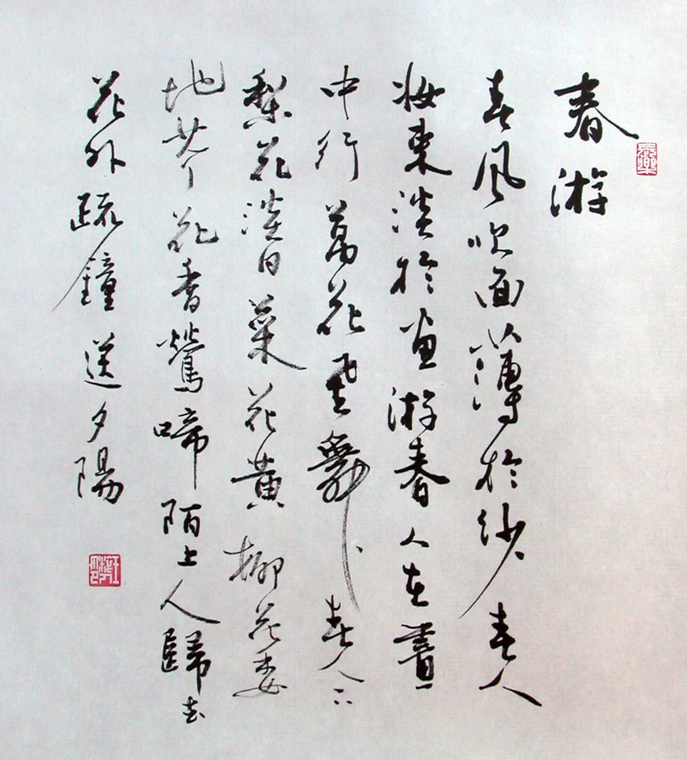 春游
春風吹面薄於紗春人
妝束淡於畫游春人在畫
中行萬花飛舞春人下
梨花淡白菜花黃柳花委
地芥花香鶯啼陌上人歸去
花外疏鐘送夕陽